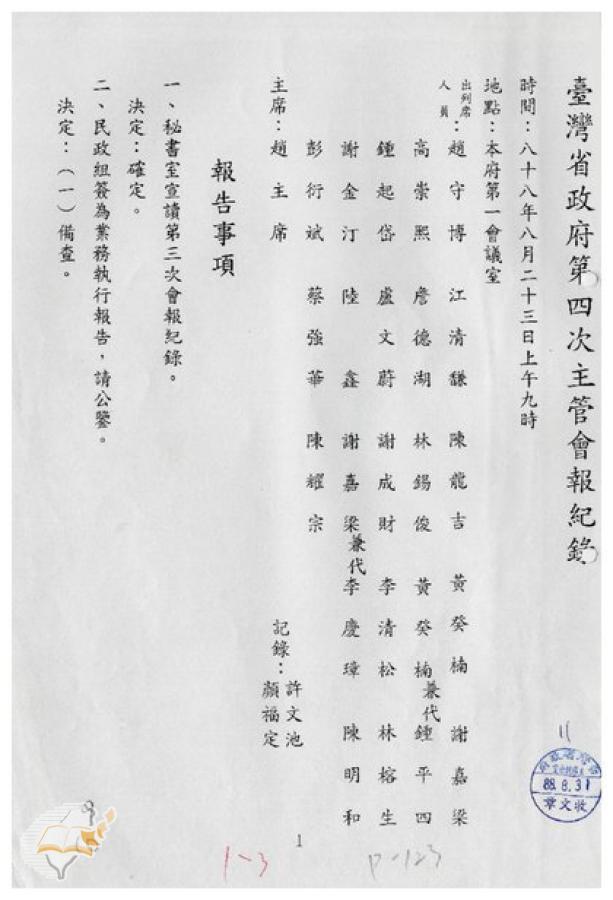 臺灣省政府第四次主管會報紀錄
時間：八十八年八月二十三日上午九時
地點：本府第一會議室
出列席人員：趙守博 江清馦 陳龍吉 黃癸楠 謝嘉梁
高崇熙 詹德湖 林錫俊 黃癸楠兼代 鍾平四
鍾起岱 盧文蔚 謝成財 李清松 林榕生
謝金汀 陸鑫 謝嘉梁兼代 李慶璋 陳明和
彭衍斌 蔡強華 陳耀宗
主席：趙主席
記錄：許文池
顏福定
報告事項
一、秘書室宣讀第三次會報紀錄。
決定：確定。
二、民政組簽為業務執行報告，請公鑒。
決定：（一）備查。
11
88.8.31
收文章
1
1-3
P-123